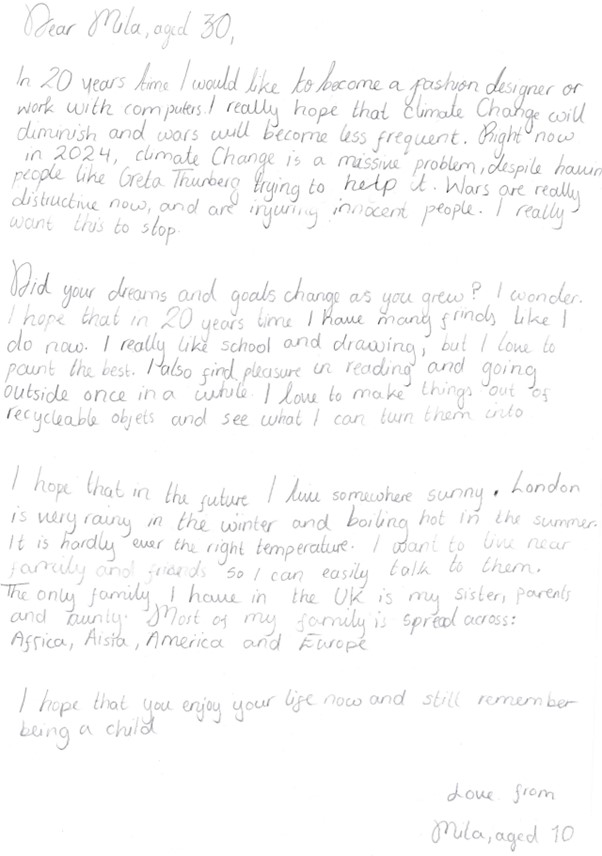 Dear Mila, aged 30,
In 20 years time I would like to become a fashion designer or
work with computers. I really hope that climate Change will
diminish and wars will become less frequent. Right now
in 2024, climate Change is a massive problem, despite havin
people like Greta Thunberg trying to help it. Wars are really
distructive now, and are injuring innocent people. I really
want this to stop.
Did your dreams and goals change as you grew? I wonder.
I hope that in 20 years time I have many frinds like I
do now. I really like school and drawing, but I love to
paint the best. I also find pleasure in reading and going
outside once in a while. I love to make things out of
recycleable objets and see what I can turn them into
I hope that in the future I live somewhere sunny. London
is very rainy in the winter and boiling hot in the summer.
It is hardly ever the right temperature. I want to live near
family and friends so I can easily talk to them.
The only family I have in the UK is my sister, parents
and aunty. Most of my family is spread across:
Africa, Aista, America and Europe
I hope that you enjoy your life now and still remember
being a child
Love from
Mila, aged 10